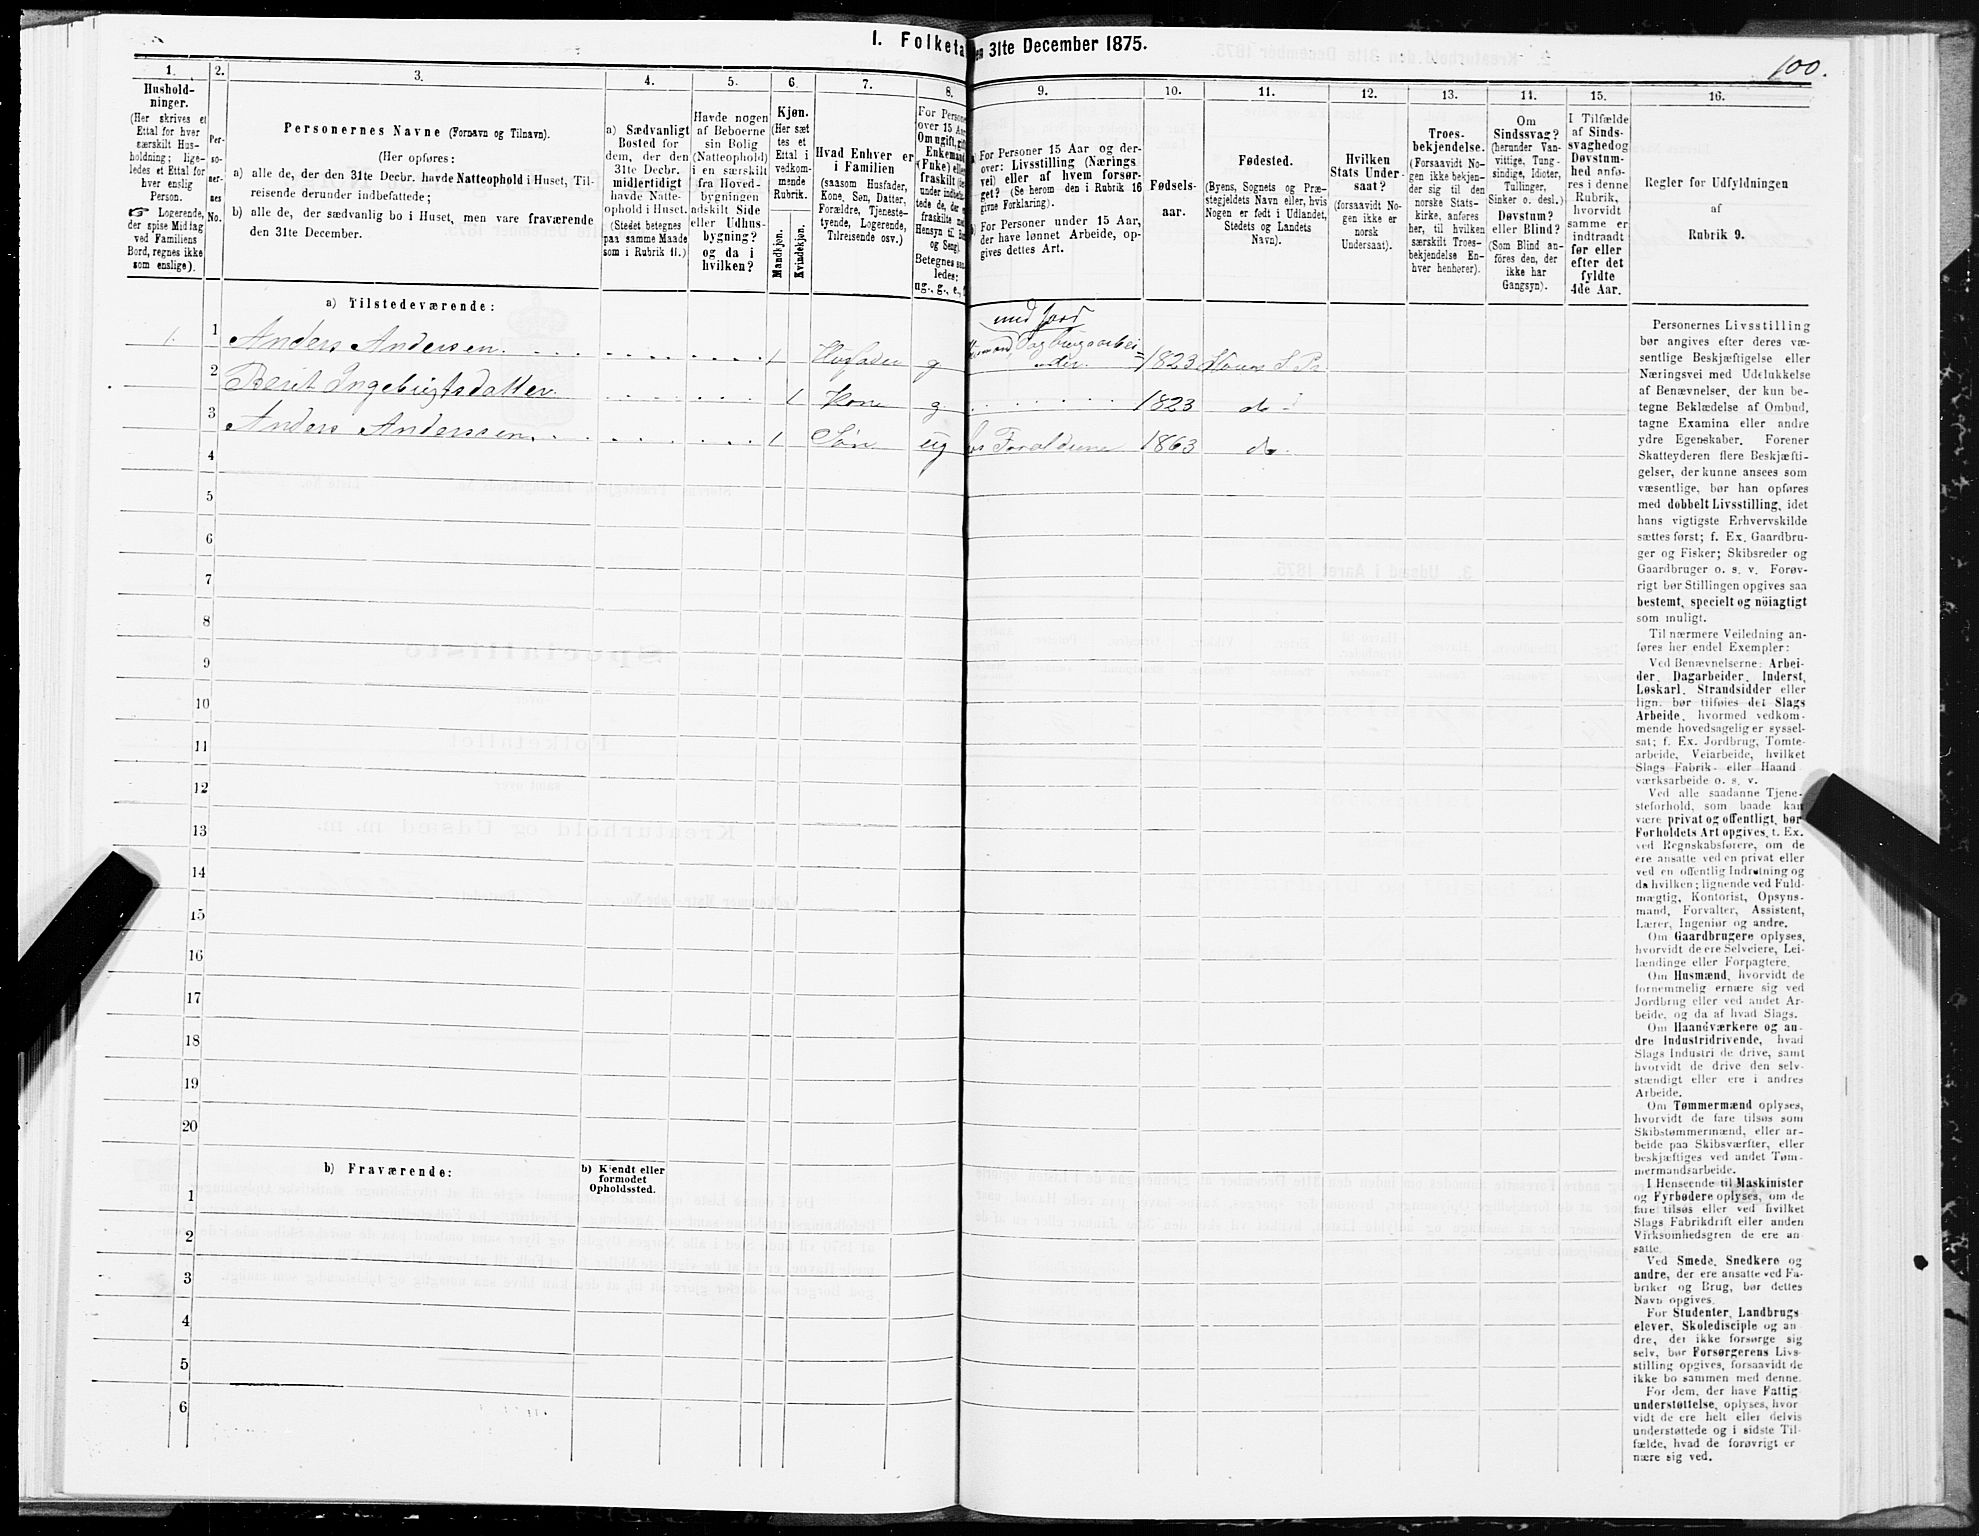 I. Folketa
en 31te December 1875.
100.
1.
2.
3.
4.
5.
6.
7.
8.
9.
10.
11.
12.
13.
14.
15.
16.
Hushold-
ninger.
(Her skrives et
Ettal for hver
særskilt Hus-
holdning; lige-
ledes et Ettal for
hver enslig
Person.
☞ Logerende,
der spise Middag
ved Familiens
Bord, regnes ikke
som enslige).
Per-
so-
ner-
nes
No.
Personernes Navne (Fornavn og Tilnavn).
(Her opføres:
a) alle de, der den 31te Decbr. havde Natteophold i Huset, Til-
reisende derunder indbefattede;
b) alle de, der sædvanlig bo i Huset, men vare fraværende
den 31te December.
a) Sædvanligt
Bosted for
dem, der den
31te Decbr.
midlertidigt
havde Natte-
ophold i Huset.
(Stedet betegnes
paa samme Maade
som i Rubrik 11.)
Havde nogen
af Beboerne
sin Bolig
(Natteophold)
i en særskilt
fra Hoved-
bygningen
adskilt Side
eller Udhus-
bygning?
og da i
hvilken?
Kjøn.
(Her sæt
tes et
Ettal i
vedkom-
mende
Rubrik.
Mandkjøn.
Kvindekjøn.
Hvad Enhver er
i Familien
(saasom Husfader,
Kone, Søn, Datter,
Forældre, Tjeneste-
tyende, Logerende,
Tilreisende osv.)
For Persone
over 15 Aar
Om ugift, gift
Enkemand
(Fuke) elle
fraskilt
under indbefat
tede de, der
fraskilte
Hensyn til
og Seng).
Betegnes saa-
ledes:
ug., g., e., f.
a) For Personer 15 Aar og der-
over: Livsstilling (Nærings
vei) eller af hvem forsør-
get? (Se herom den i Rubrik 16
givne Forklaring).
b) For Personer under 15 Aar,
der have lønnet Arbeide, op-
gives dettes Art.
Fødsels-
aar.
Fødested.
(Byens, Sognets og Præ-
stegjeldets Navn eller, hvis
Nogen er født i Udlandet,
Stedets og Landets
Navn).
Hvilken
Stats Under-
saat?
(forsaavidt No-
gen ikke er
norsk
Undersaat).
Troes-
bekjendelse.
(Forsaavidt No-
gen ikke bekjen-
der sig til den
norske Stats-
kirke, anføres
her, til hvilken
særskilt Troes-
bekjendelse En-
hver henhører).
Om
Sindssvag?
(herunder Van-
vittige, Tung-
sindige, Idioter,
Tullinger,
Sinker o. desl.)
Døvstum?
eller Blind?
(Som Blind an-
føres den, der
ikke har
Gangsyn).
I Tilfælde
af Sinds-
svaghed og
Døvstum-
hed anfø-
res i denne
Rubrik,
hvorvidt
samme er
indtraadt
før eller
efter det
fyldte
4de Aar.
Regler for Udfyldningen
af
Rubrik 9.
a) Tilstedeværende:
med Jord
1. 1 Anders Andersen 1 Husfader g Husmand, Dagbrugsarbei=
der. 1823
2 Berit Ingebrigtsdatter 1 Kone g 1823 do
3 Anders Anderssen 1 Søn ug hos Forældrene 1863 do.
4
5
6
7
8
9
10
11
12
13
14
15
16
17
18
19
20
b) Fraværende:
b) Kjendt eller
formodet
Opholdssted.
1
2
3
4
5
6
Personernes Livsstilling
bør angives efter deres væ-
sentlige Beskjæftigelse eller
Næringsvei med Udelukkelse
af Benævnelser, der kun be-
tegne Beklædelse af Ombud,
tagne Examina eller andre
ydre Egenskaber. Forener
Skatteyderen flere Beskjæfti-
gelser, der kunne ansees som
væsentlige, bør han opføres
med dobbelt Livsstilling, idet
hans vigtigste Erhvervskilde
sættes først; f. Ex. Gaardbru-
ger og Fisker; Skibsreder og
Gaardbruger o. s. v. Forøv-
rigt bør Stillingen opgives saa
bestemt, specielt og nöiagtigt
som muligt.
Til nærmere Veiledning an-
føres her endel Exempler:
Ved Benævnelserne: Arbei-
der, Dagarbeider, Inderst,
Løskarl, Strandsidder eller
lign. bør tilføies det Slags
Arbeide, hvormed vedkom-
mende hovedsagelig er syssel-
sat; f. Ex. Jordbrug, Tomte-
arbeide, Veiarbeide, hvilket
Slags Fabrik- eller Haand
værksarbeide o. s. v.
Ved alle saadanne Tjene-
steforhold, som baade kan
være privat og offentligt, bør
Forholdets Art opgives, t. Ex.
ved Regnskabsførere, om de
ere ansatte ved en privat eller
ved en offentlig Indretning og
da hvilken; lignende ved Fuld-
mægtig, Kontorist, Opsyns-
mand, Forvalter, Assistent,
Lærer, Ingeniør og andre.
Om Gaardbrugere oplyses,
hvorvidt de ere Selveiere, Lei-
lændinge eller Forpagtere.
Om Husmænd, hvorvidt de
fornemmelig ernære sig ved
Jordbrug eller ved andet Ar-
beide, og da af hvad Slags.
Om Haandværkere og an-
dre Industridrivende, hvad
Slags Industri de drive, samt
hvorvidt de drive den selv-
stændigt eller ere i andres
Arbeide.
Om Tømmermænd oplyses,
hvorvidt de fare tilsøs som
Skibstømmermænd, eller ar-
beide paa Skibsværfter, eller
beskjæftiges ved andet Tøm-
mermandsarbeide.
I Henseende til Maskinister
og Fyrbødere oplyses, om de
fare tilsøs eller ved hvilket
Slags Fabrikdrift eller anden
Virksomhedsgren de ere an-
satte.
Ved Smede, Snedkere og
andre, der ere ansatte ved Fa-
briker og Brug, bør dettes
Navn opgives.
For Studenter, Landbrugs
elever, Skoledisciple og an
dre, der ikke forsørge sig
selv, bør Forsørgerens Livs-
stilling opgives, forsaavidt de
ikke bo sammen med denne.
For dem, der have Fattig
understøttelse, oplyses, hvor
vidt de ere helt eller delvis
understøttede og i sidste Til-
fælde, hvad de forøvrigt er
nære sig ved.